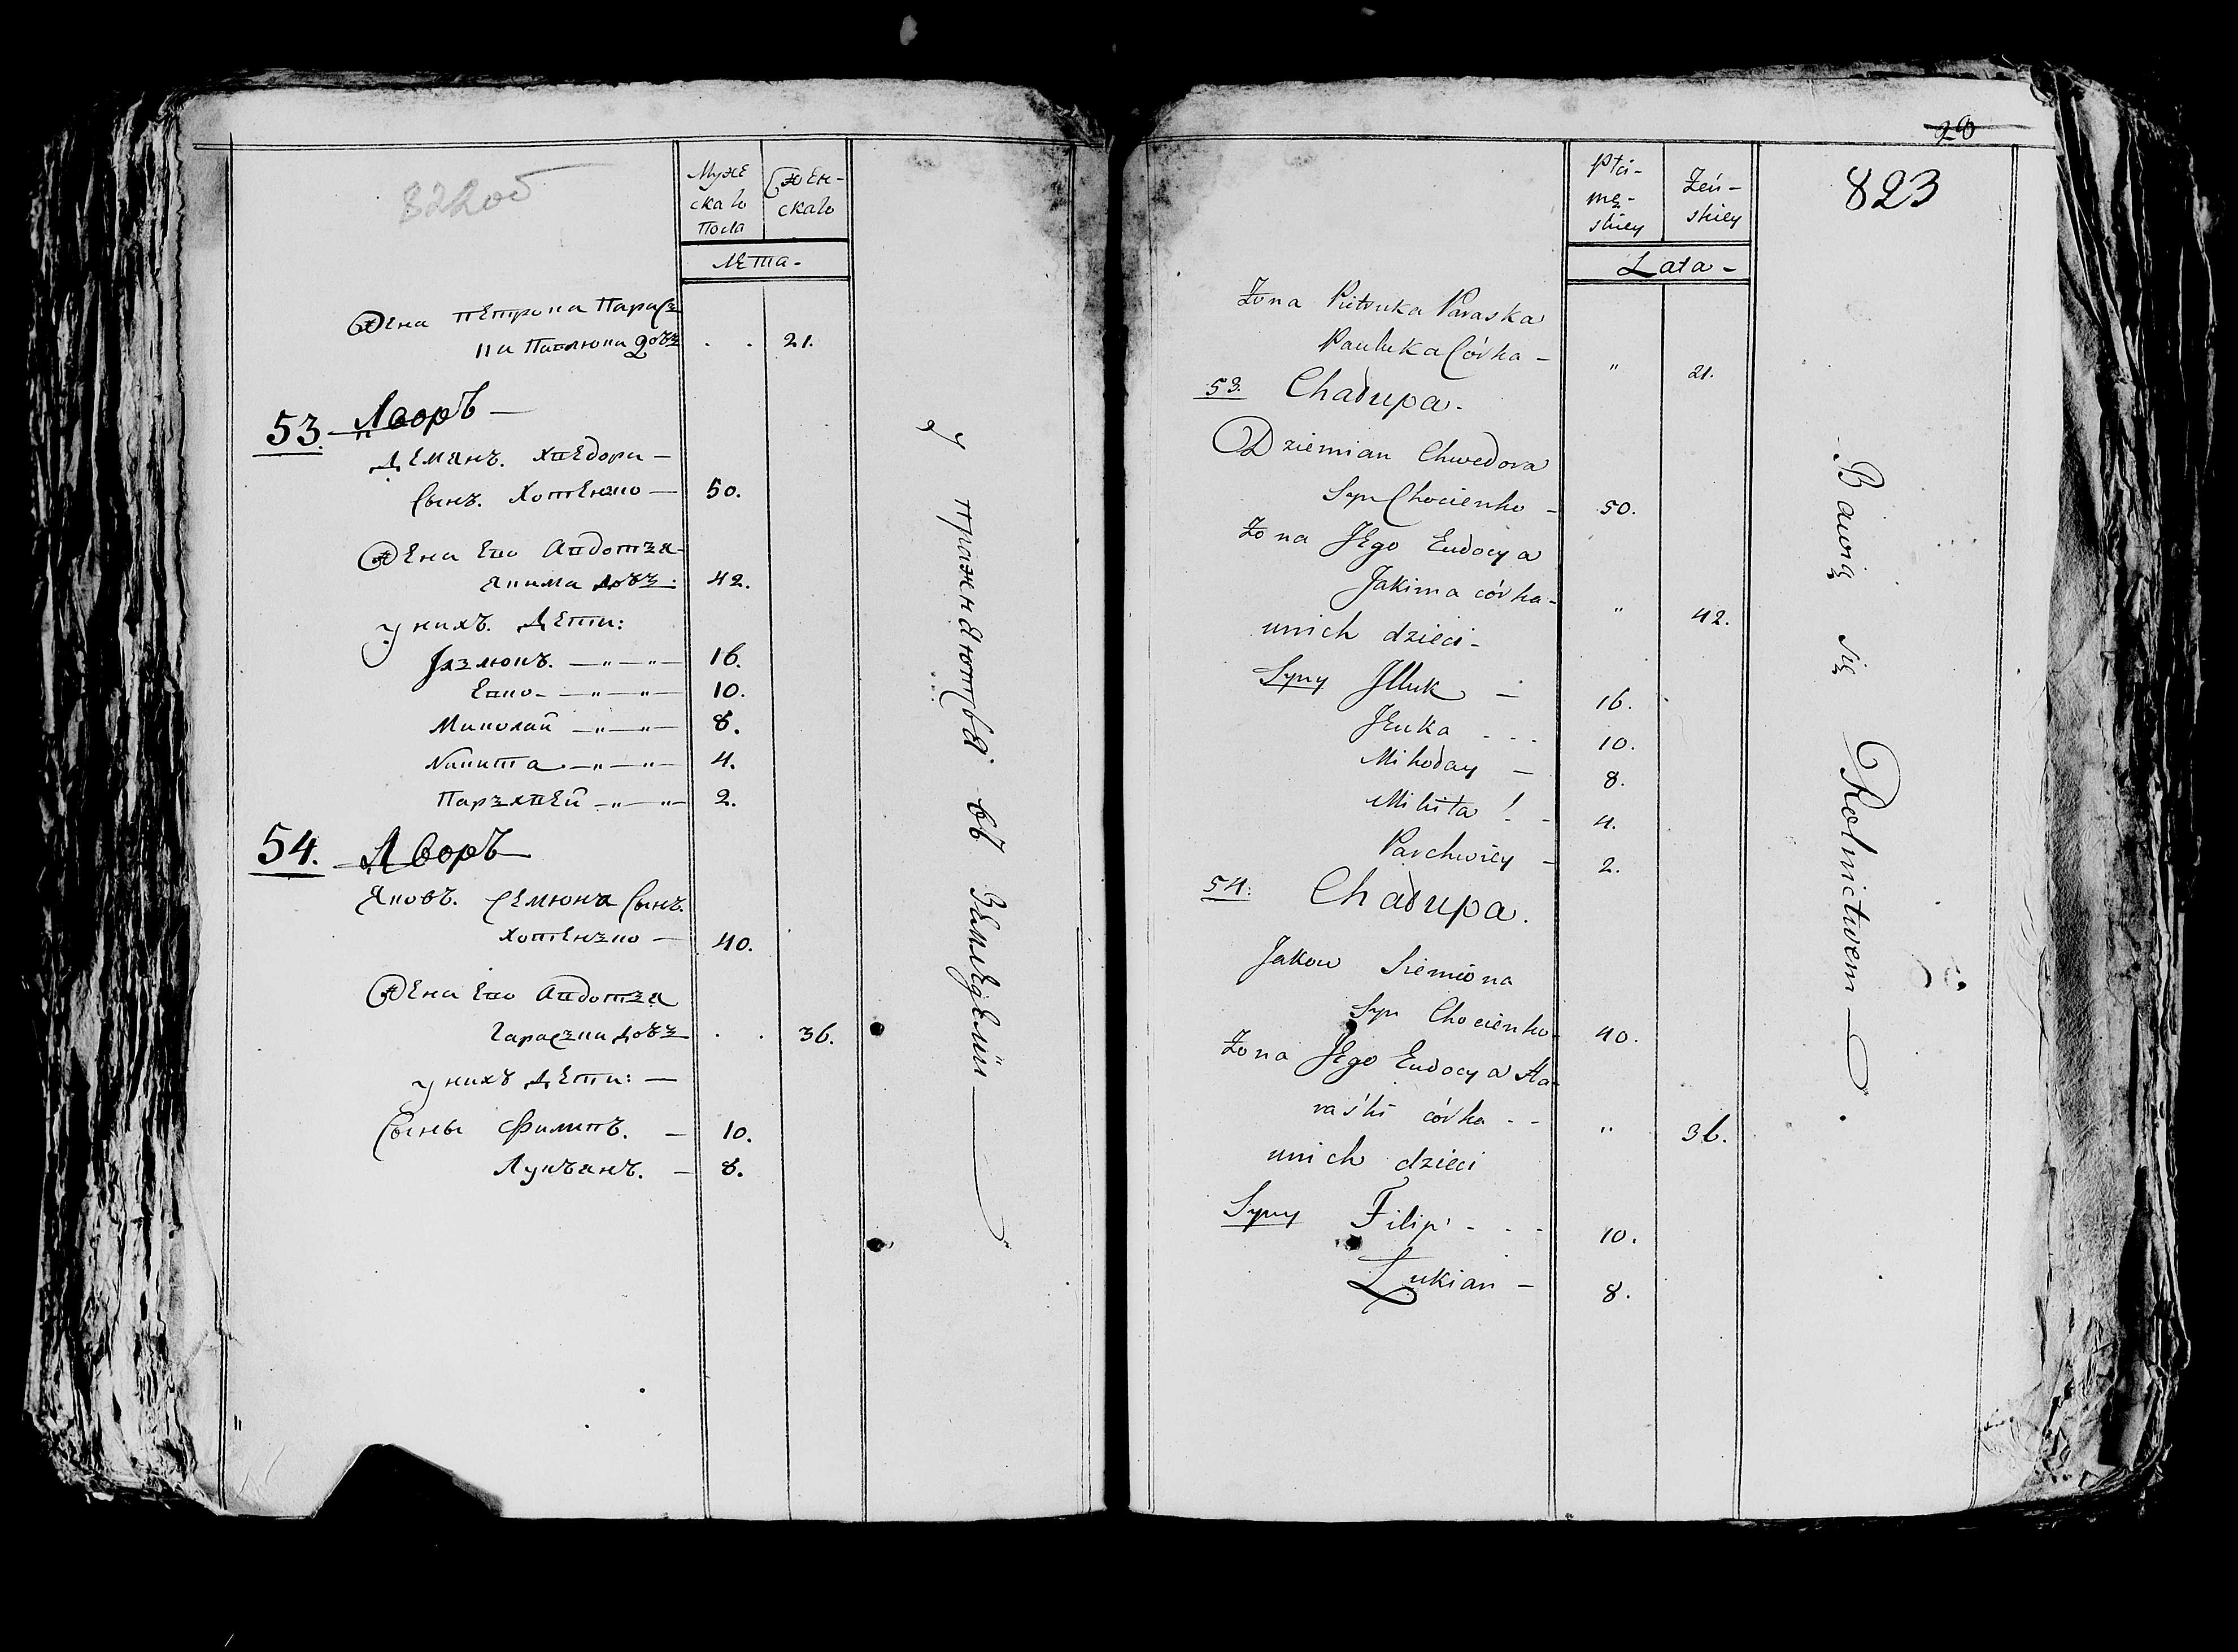 822об
Муже
скаго
Пола
Жен-
скаго
Лета-
Жена Петрука Парась
ка Павлюка довъ . . 21.
53. Дворъ —
Демянъ. Хведора —
Сынъ. Хотенко — 50.
Жена Его Авдотья
Якима довъ: 42.
у нихъ. Дети:
— " — " — 16.
Евко - — " — " — 10.
Миколай — " — " — 8.
Микита — " — " — 4.
Пархвей — " — " — 2.
54. Дворъ
Яковъ. Семюна Сынъ.
Хотенько — 40.
Жена Его Авдотья
Гараськи довъ . . 36.
у нихъ Дети: —
Сыны Филипъ. — 10.
Лукъянъ. — 8.
упражняются въ Земледелiи
28
823
Płci-
mę-
skiey
Żeń-
skiey
Lata -
Żona Pietruka Paraska
Pauluka Córka - " 21.
53. Chałupa.
Dziemian Chwedora
Syn Chocienko - 50.
Żona JEgo Eudocya
Jakima córka - " 42.
unich dzieci -
Syny Illuk - 16.
JEuka - - - 10.
Mikołay - 8.
Mikita ! - 4.
Parchwiey - 2.
54. Chałupa.
Jakow Siemiona
Syn Chocienko - 40.
Żona JEgo Eudocya Ha-
raśki córka - - " 36.
unich dzieci
Syny Filip - - - 10.
Łukian - 8.
Bawią się Rolnictwem — .